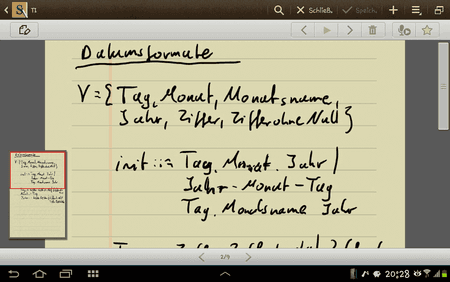 TI
Schließ.
Speich.
Datumsformate
V={Tag, Monat, Monatsname,
Jahr, Ziffer, ZifferohneNull}
init ::= Tag. Monat. Jahr |
Jahr-Monat-Tag
Tag. Monatsname Jahr
2/9
20:28